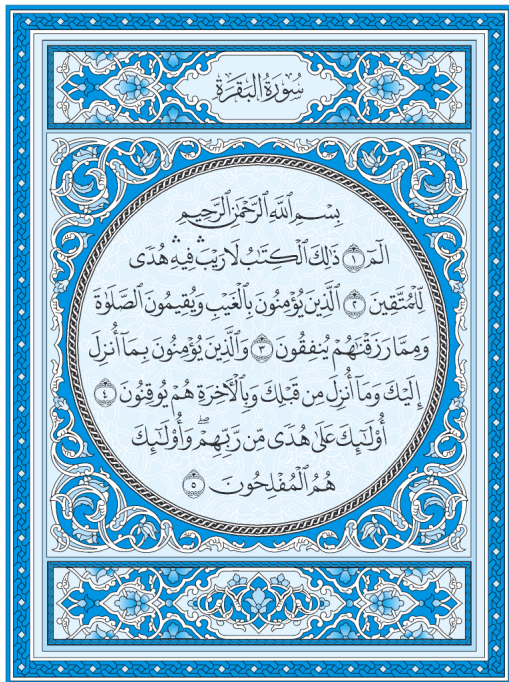 سُورَةُ ٱلْبَقَرَةِ
بِسْمِ ٱللَّهِ ٱلرَّحْمَٰنِ ٱلرَّحِيمِ
الٓمٓ ١ ذَٰلِكَ ٱلْكِتَٰبُ لَا رَيْبَۛ فِيهِۛ هُدًى
لِّلْمُتَّقِينَ ٢ ٱلَّذِينَ يُؤْمِنُونَ بِٱلْغَيْبِ وَيُقِيمُونَ ٱلصَّلَوٰةَ
وَمِمَّا رَزَقْنَٰهُمْ يُنفِقُونَ ٣ وَٱلَّذِينَ يُؤْمِنُونَ بِمَآ أُنزِلَ
إِلَيْكَ وَمَآ أُنزِلَ مِن قَبْلِكَ وَبِٱلْأَخِرَةِ هُمْ يُوقِنُونَ ٤
أُو۟لَٰٓئِكَ عَلَىٰ هُدًى مِّن رَّبِّهِمْۖ وَأُو۟لَٰٓئِكَ
هُمُ ٱلْمُفْلِحُونَ ٥